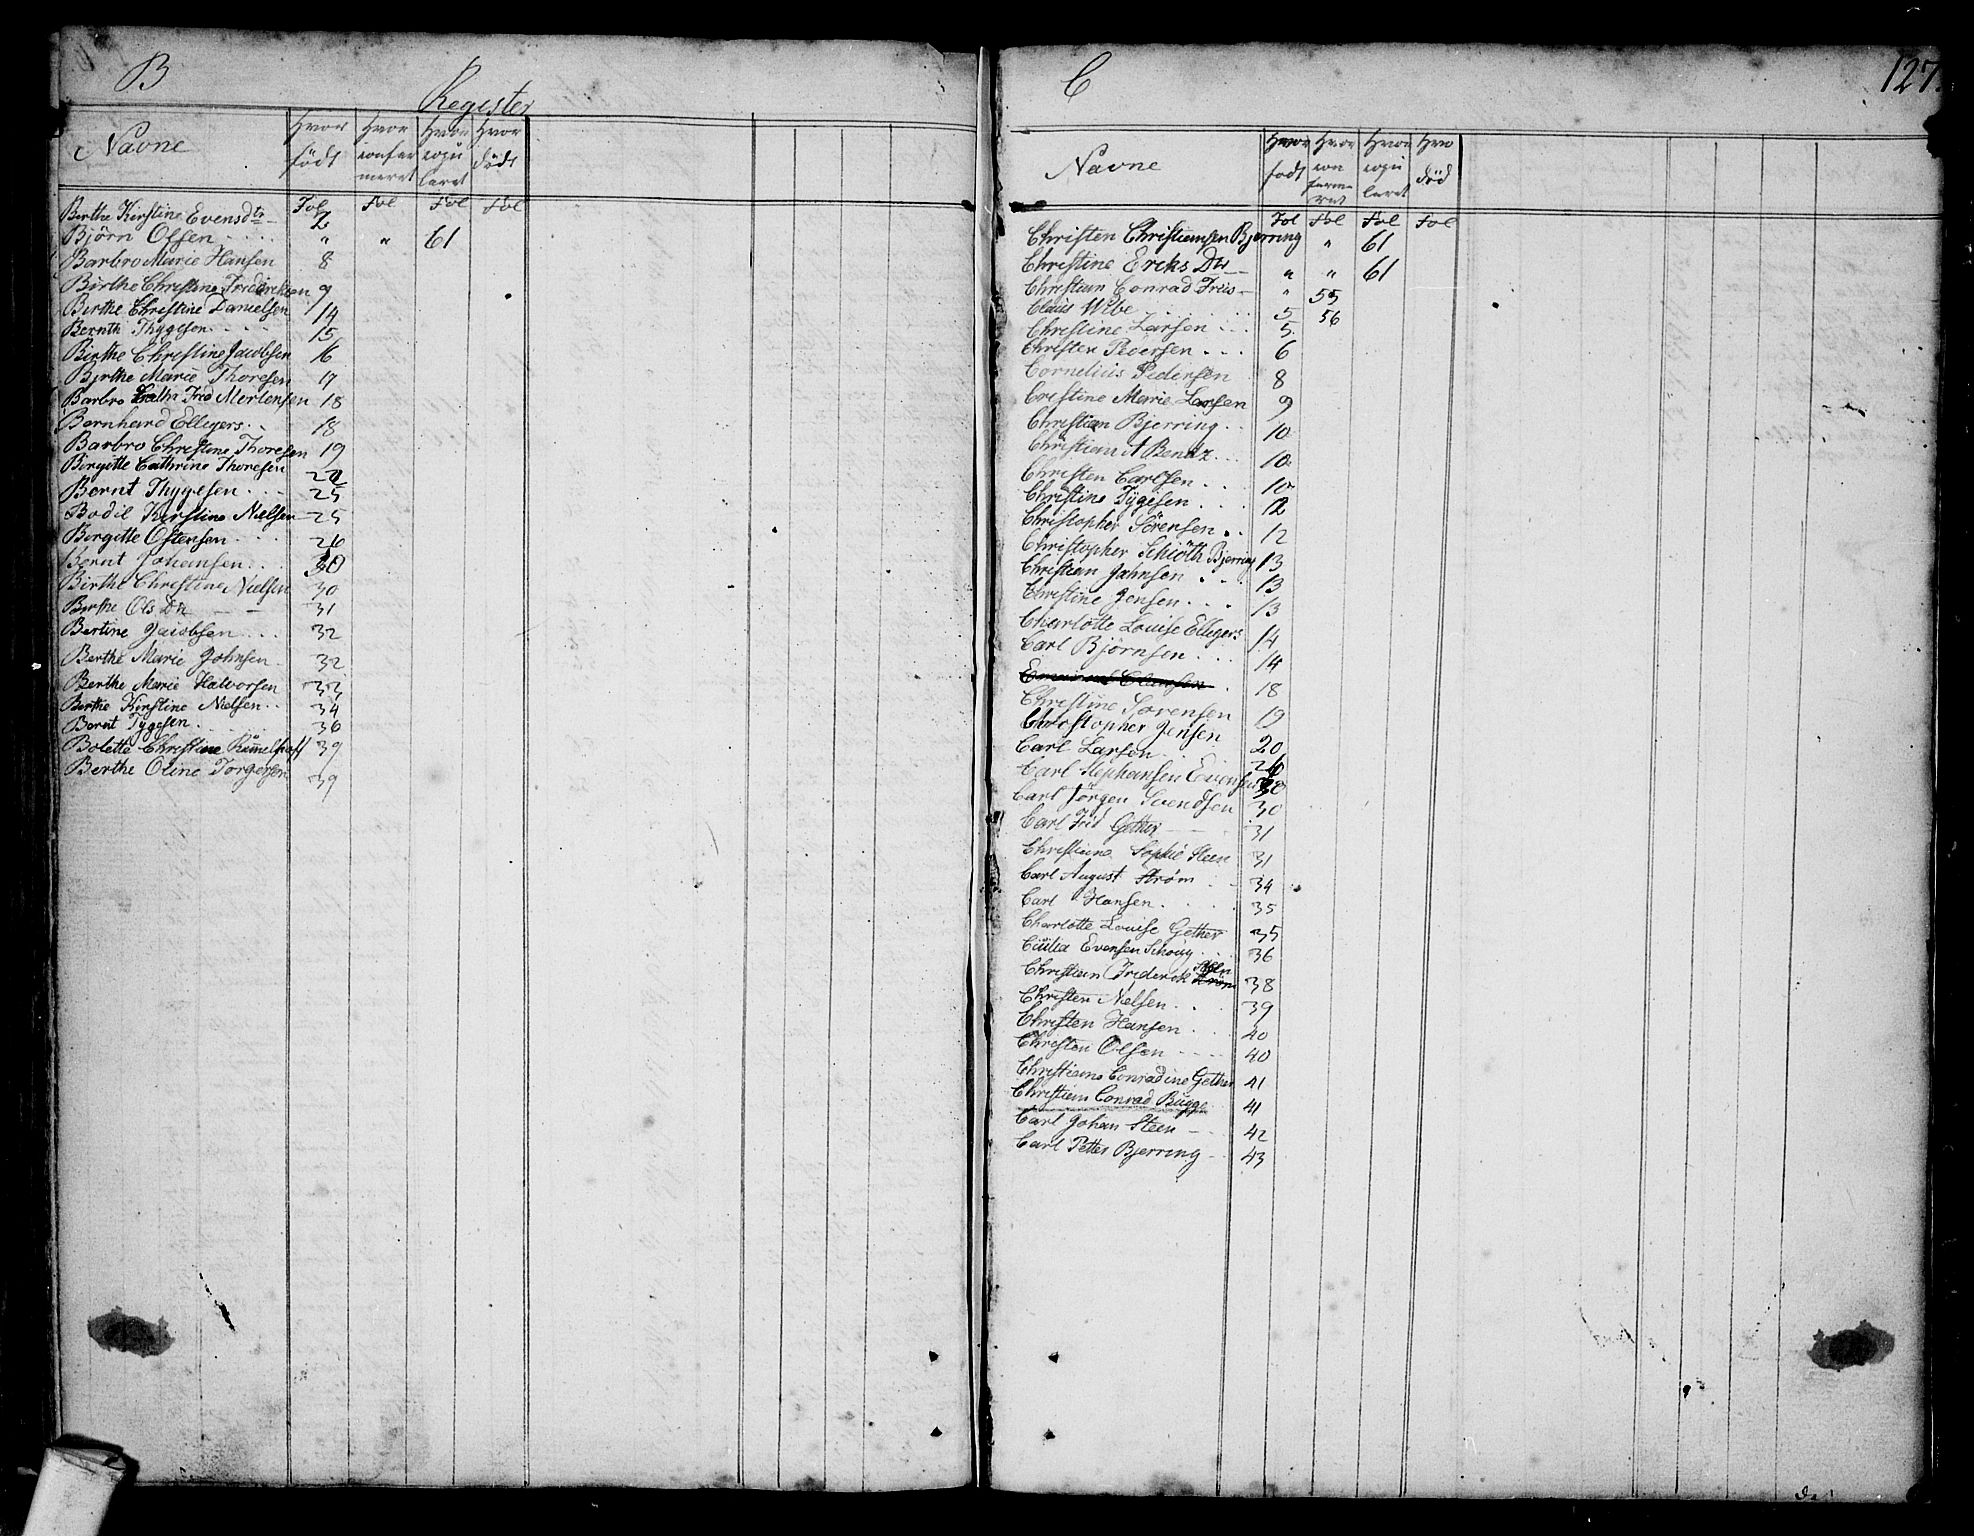 B
Register
Navne
Hvor født
Hvor confermeret
Hvor copuleret
Hvor død
Fol Fol Fol Fol
Berthe Kirstine Evensdtr 2
Bjørn Olsen " " 61
Barbro Marie Hansen 8
Birthe Christine Fredriksen 9
Birthe Christine Danielsen 14
Bernth Thygesen 15
Birthe Christine Jacobsen 16
Birthe Marie Thoresen 17
Barbro Fred Mertensen 18
Bernhard Ellegers 18
Barbro Christine Thoresen 19
Birgitte Cathrine Thoresen 22
Bernt Thygesen 25
Bodil Kirstine Nielsen 25
Birgitte Ostensen 26
Bernt Johansen 30
Birthe Christine Nielsen 30
Berthe Ols Dtr 31
Bertine Jacobsen 32
Berthe Marie Johnsen 32
Berthe Marie Halvorsen 33
Berthe Kirstine Nielsen 34
Bernt Tygesen 36
Bolette Christine 39
Berthe Oline Torgersen 39
C
127.
Navne
Hvor født
Hvor confermeret
Hvor copuleret
Hvor død
Fol Fol Fol Fol
Christen Christiansen Bjerring " 61
Christine Ericks Dtr " " 61
Christian Conrad Friis " 55
Claus Wibe 5 56
Christine Larsen 5
Christen Pedersen 6
Cornelius Pedersen 8
Cristine Marie Larsen 9
Christian Bjerring 10
Christian A Bentz 10
Christen Carlsen 10
Christine Tygesen 12
Christopher Sörensen 12
Christopher Schiöth Bjerring 13
Christian Jahnsen 13
Christine Jensen 13
Charlotte Louise Ellegers 14
Carl Bjørnsen 14
18
Christine Sorensen 19
Christopher Jensen 20
Carl Larsen 24
Carl Stephansen Evensen 30
Carl Jörgen Svendsen 30
Carl Fred Gether 31
Christiane Sophie Steen 31
Carl August Strøm 34
Carl Hansen 35
Charlotte Louise Gether 35
Evensen Schoug 36
Christian Frederik Steen Strøm 38
Christen Nielsen 39
Christen Hansen 40
Christen Olsen 40
Christiane Conradine Gether 41
Christian Conrad Bugge 41
Carl Johan Steen 42
Carl Petter Bjerring 43